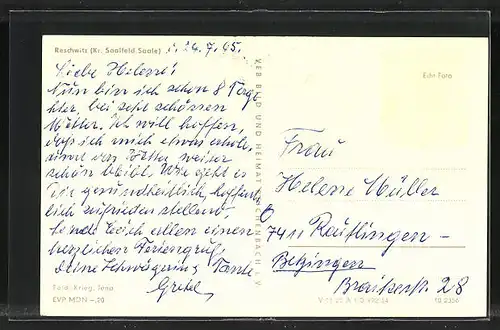 Reschwitz (Kr. Saalfeld Saale)
d. 24.7.65.
Liebe Helene!
Nun bin ich schon 8 Tage
hier, bei sehr schönen
Wetter. Ich will hoffen,
daß ich mich etwas erhole,
und das Wetter weiter
schön bleibt. Wie geht es
Dir gesundheitlich, hoffent-
lich zufriedenstellend.
Sende Euch allen einen
herzlichen Feriengruß
Deine Schwägerin u. Tante
Gretel
Foto: Krieg, Jena
EVP MDN -,20
KEB BILD UND HEIMAT REICHENBACH i. V.
Echt Foto
Frau
Helene Müller
7411 Reutlingen-
Betzingen
28